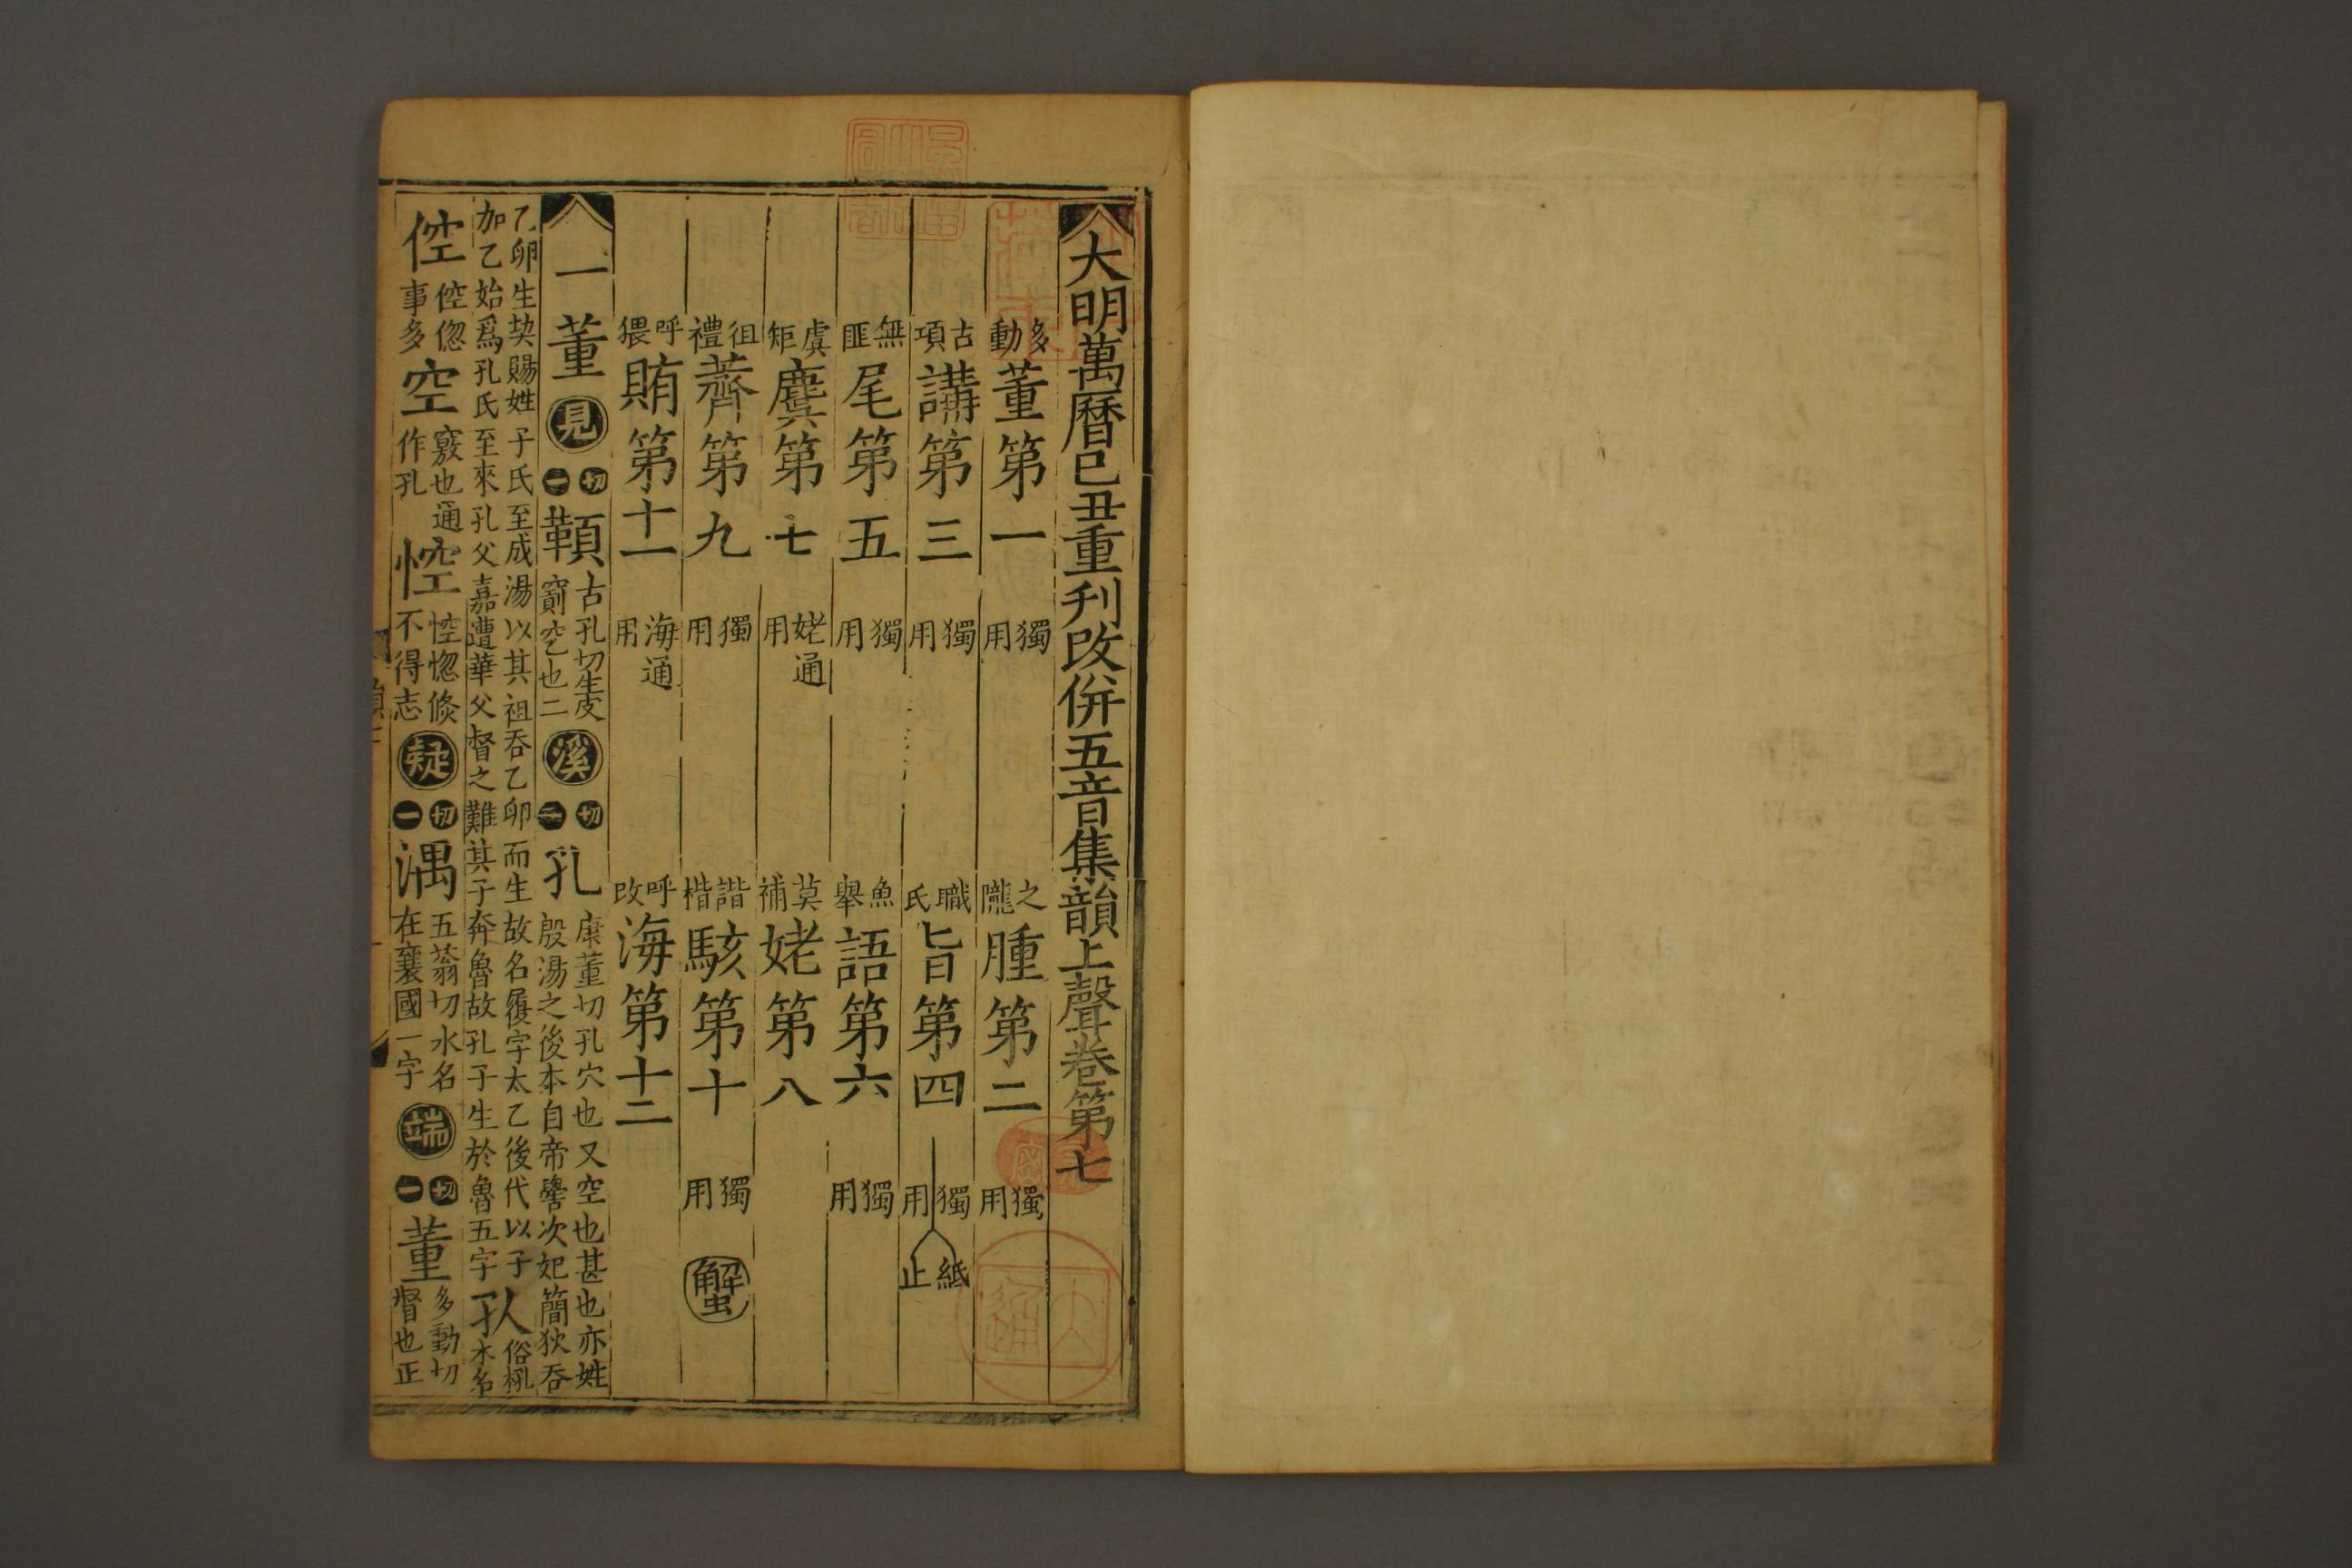 大明萬曆己丑重刊改併五音集韻上聲卷第七
多動董第一 獨用 之隴腫第二 獨用
古項講第三 獨用 職氏旨第四 獨用 紙止
無匪尾第五 獨用 魚舉語第六 獨用
虞矩麌第七 姥通用 莫補姥第八
徂禮薺第九 獨用 諧楷駭第十 獨用 蟹
呼猥賄第十一 海通用 呼改海第十二
一董 見 切一 䩲 古孔切生皮竅空也二 溪 切一 孔 康董切孔穴也又空也甚也亦姓殷湯之後本自帝嚳次妃簡狄吞
乙卵生契賜姓子氏至成湯以其祖吞乙卵而生故名履字太乙後代以子加乙始爲孔氏至來孔父嘉遭華父督之難其子奔魯故孔子生於魯五字 俗椀木名
倥 倥偬事多 空 竅也通作孔 悾 悾惚倐不得志 疑 切一 湡 五蓊切水名在襄國一字 端 切一 董 多動切督也正